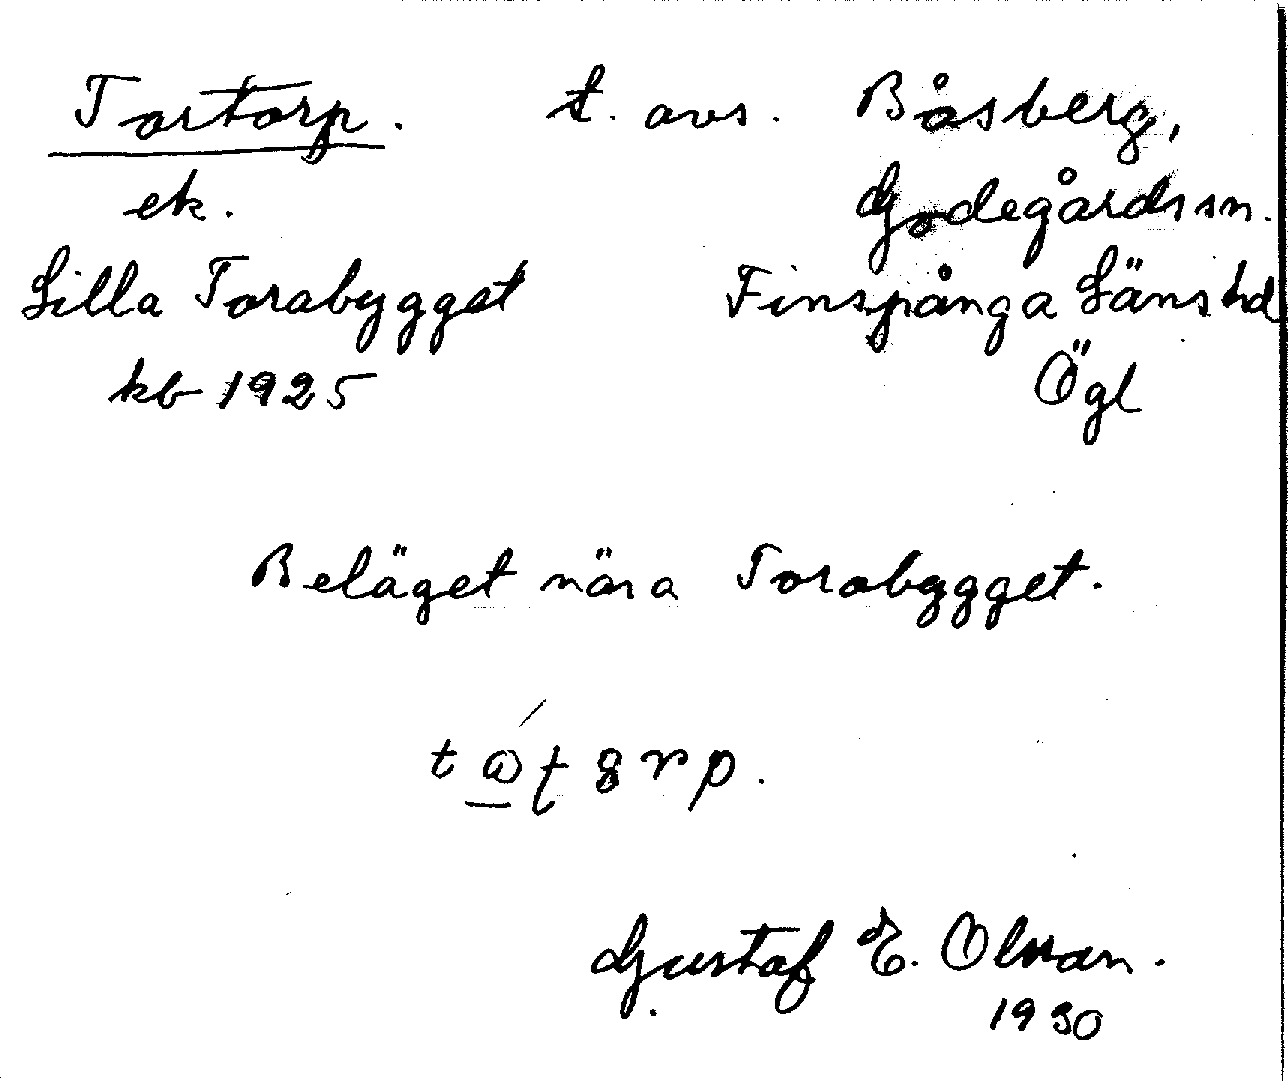 Tortorp. t. avs. Båsberg,
ek. Godegårds sn.
Lilla Torabygget Finspånga Läns hd
kb 1925 Ögl
Beläget nära Torabygget.
Gustaf E. Olsson.
1930